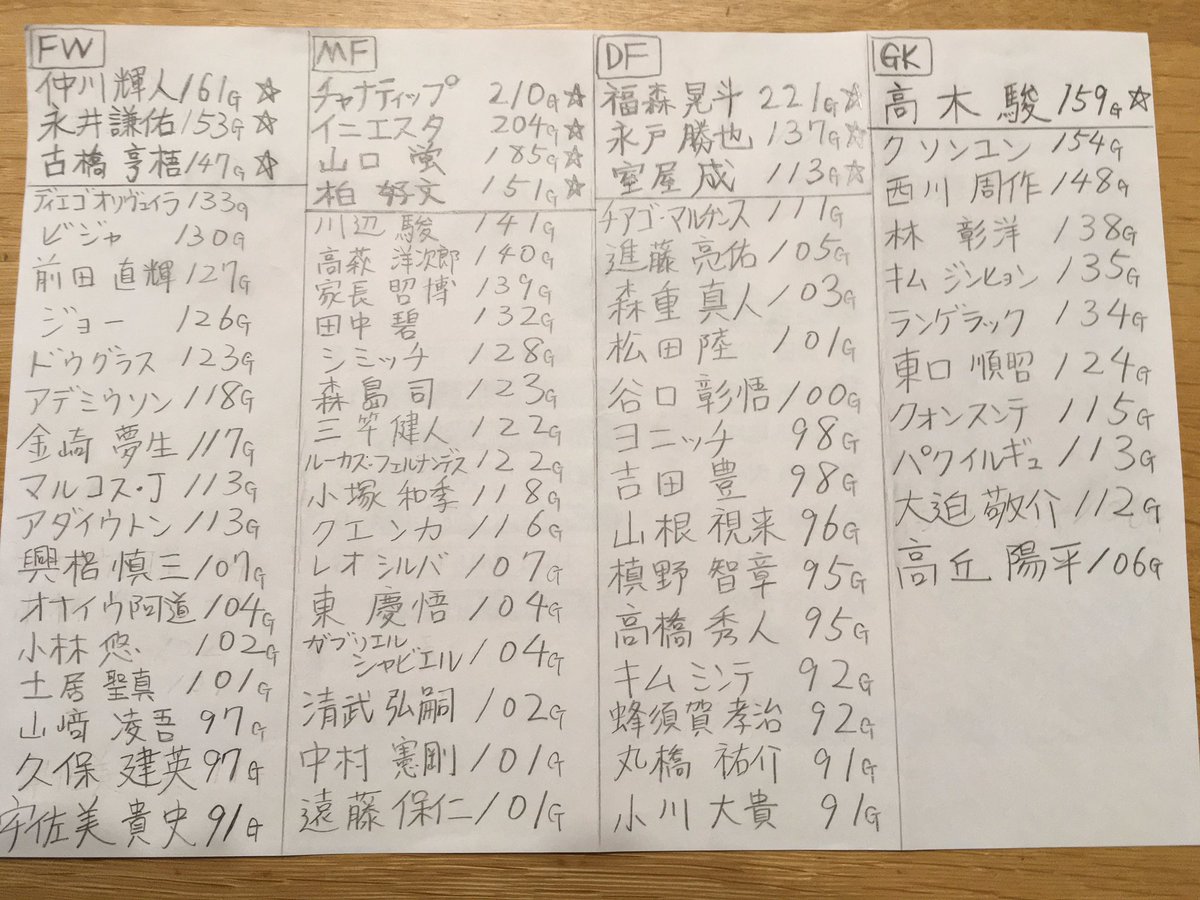 FW
仲川輝人 161G ☆
永井謙佑 153G ☆
古橋亨梧 147G ☆
ディエゴオリヴェイラ 133G
ビジャ 130G
前田直輝 127G
ジョー 126G
ドウグラス 123G
アデミウソン 118G
金崎夢生 117G
マルコス・J 113G
アダイウトン 113G
興梠慎三 107G
オナイウ阿道 104G
小林悠 102G
土居聖真 101G
山﨑凌吾 97G
久保建英 97G
宇佐美貴史 91G
MF
チャナティップ 210G ☆
イニエスタ 204G ☆
山口蛍 185G ☆
柏好文 151G ☆
川辺駿 141G
高萩洋次郎 140G
家長昭博 139G
田中碧 132G
シミッチ 128G
森島司 123G
三竿健人 122G
ルーカス・フェルナンデス 122G
小塚和季 118G
クエンカ 116G
レオシルバ 107G
東慶悟 104G
ガブリエル
シャビエル 104G
清武弘嗣 102G
中村憲剛 101G
遠藤保仁 101G
DF
福森晃斗 221G ☆
永戸勝也 137G ☆
室屋成 113G ☆
チアゴ・マルチンス 111G
進藤亮佑 105G
森重真人 103G
松田陸 101G
谷口彰悟 100G
ヨニッチ 98G
吉田豊 98G
山根視来 96G
槙野智章 95G
高橋秀人 95G
キムミンテ 92G
蜂須賀孝治 92G
丸橋祐介 91G
小川大貴 91G
GK
高木駿 159G ☆
クソンユン 154G
西川周作 148G
林彰洋 138G
キムジンヒョン 135G
ランゲラック 134G
東口順昭 124G
クォンスンテ 115G
パクイルギュ 113G
大迫敬介 112G
高丘陽平 106G